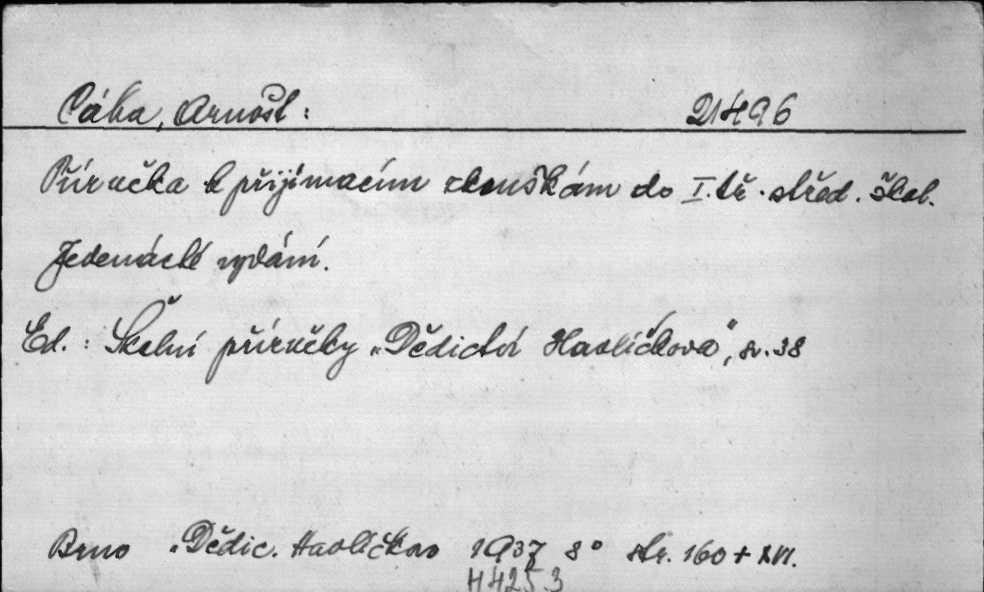 Cáha, Arnošt: 21496
Příručka k přijímacím zkouškám do I. tř. střed. škol.
Jedenácté vydání.
Ed.: Školní příručky „Dědictví Havlíčkova", sv. 38
Brno „Dědic. Havlíčkovo 1937 8° str. 160 + XVI.
H4253